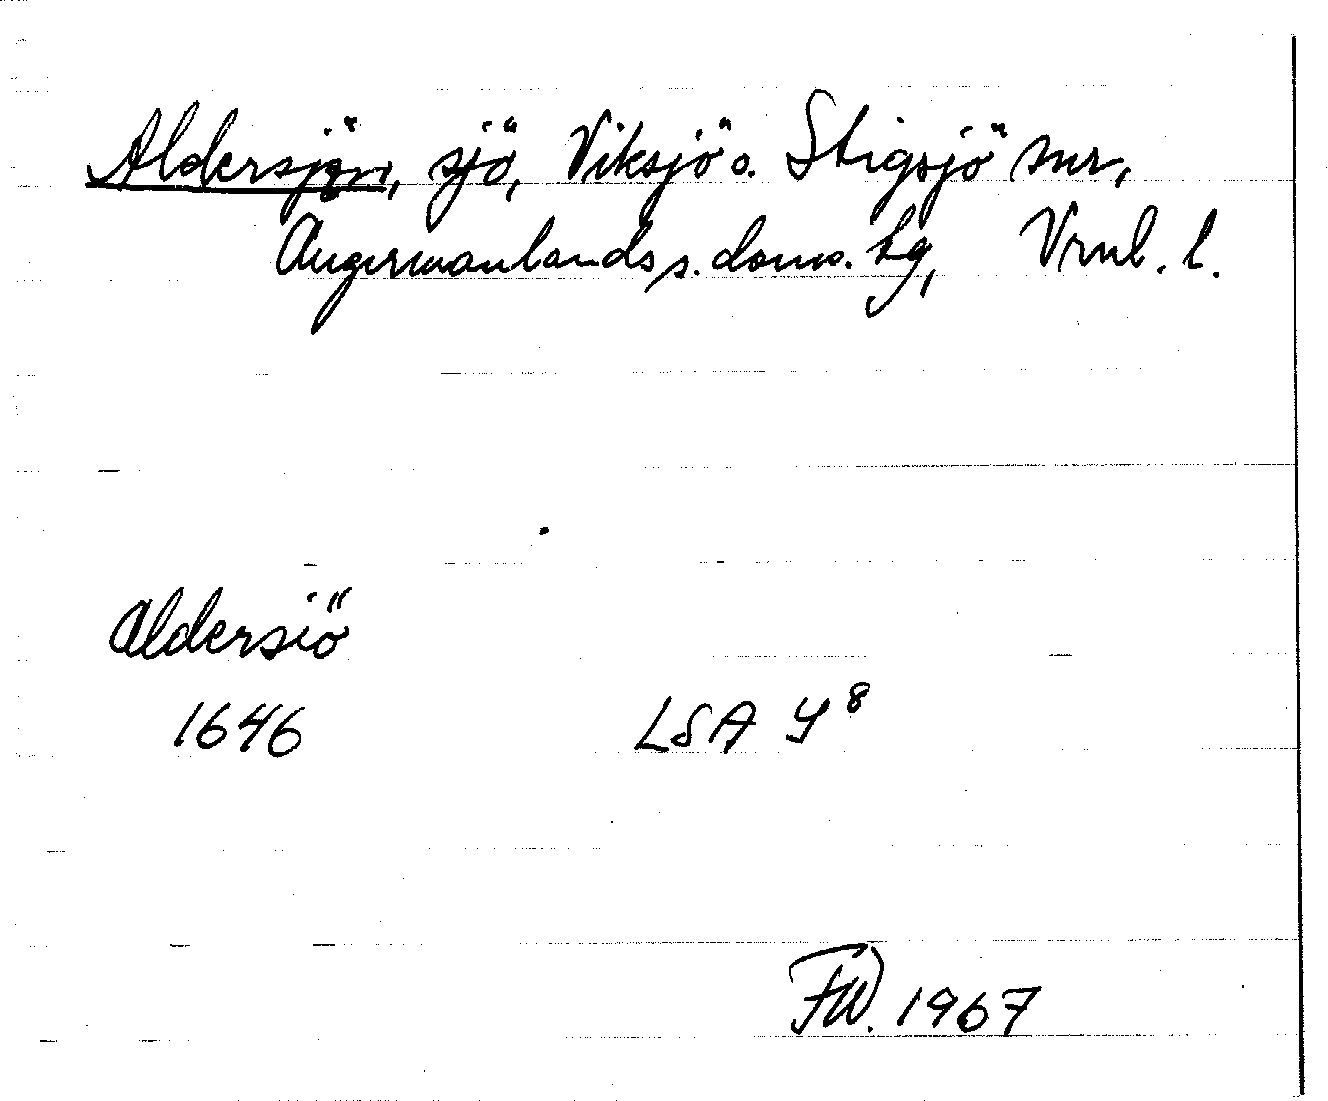 Aldersjön, sjö, Viksjö o. Stigsjö snr,
Ångermanlands s. doms. tg, Vrnl. l.
Aldersiö
1646 LSA Y⁸
FW. 1967